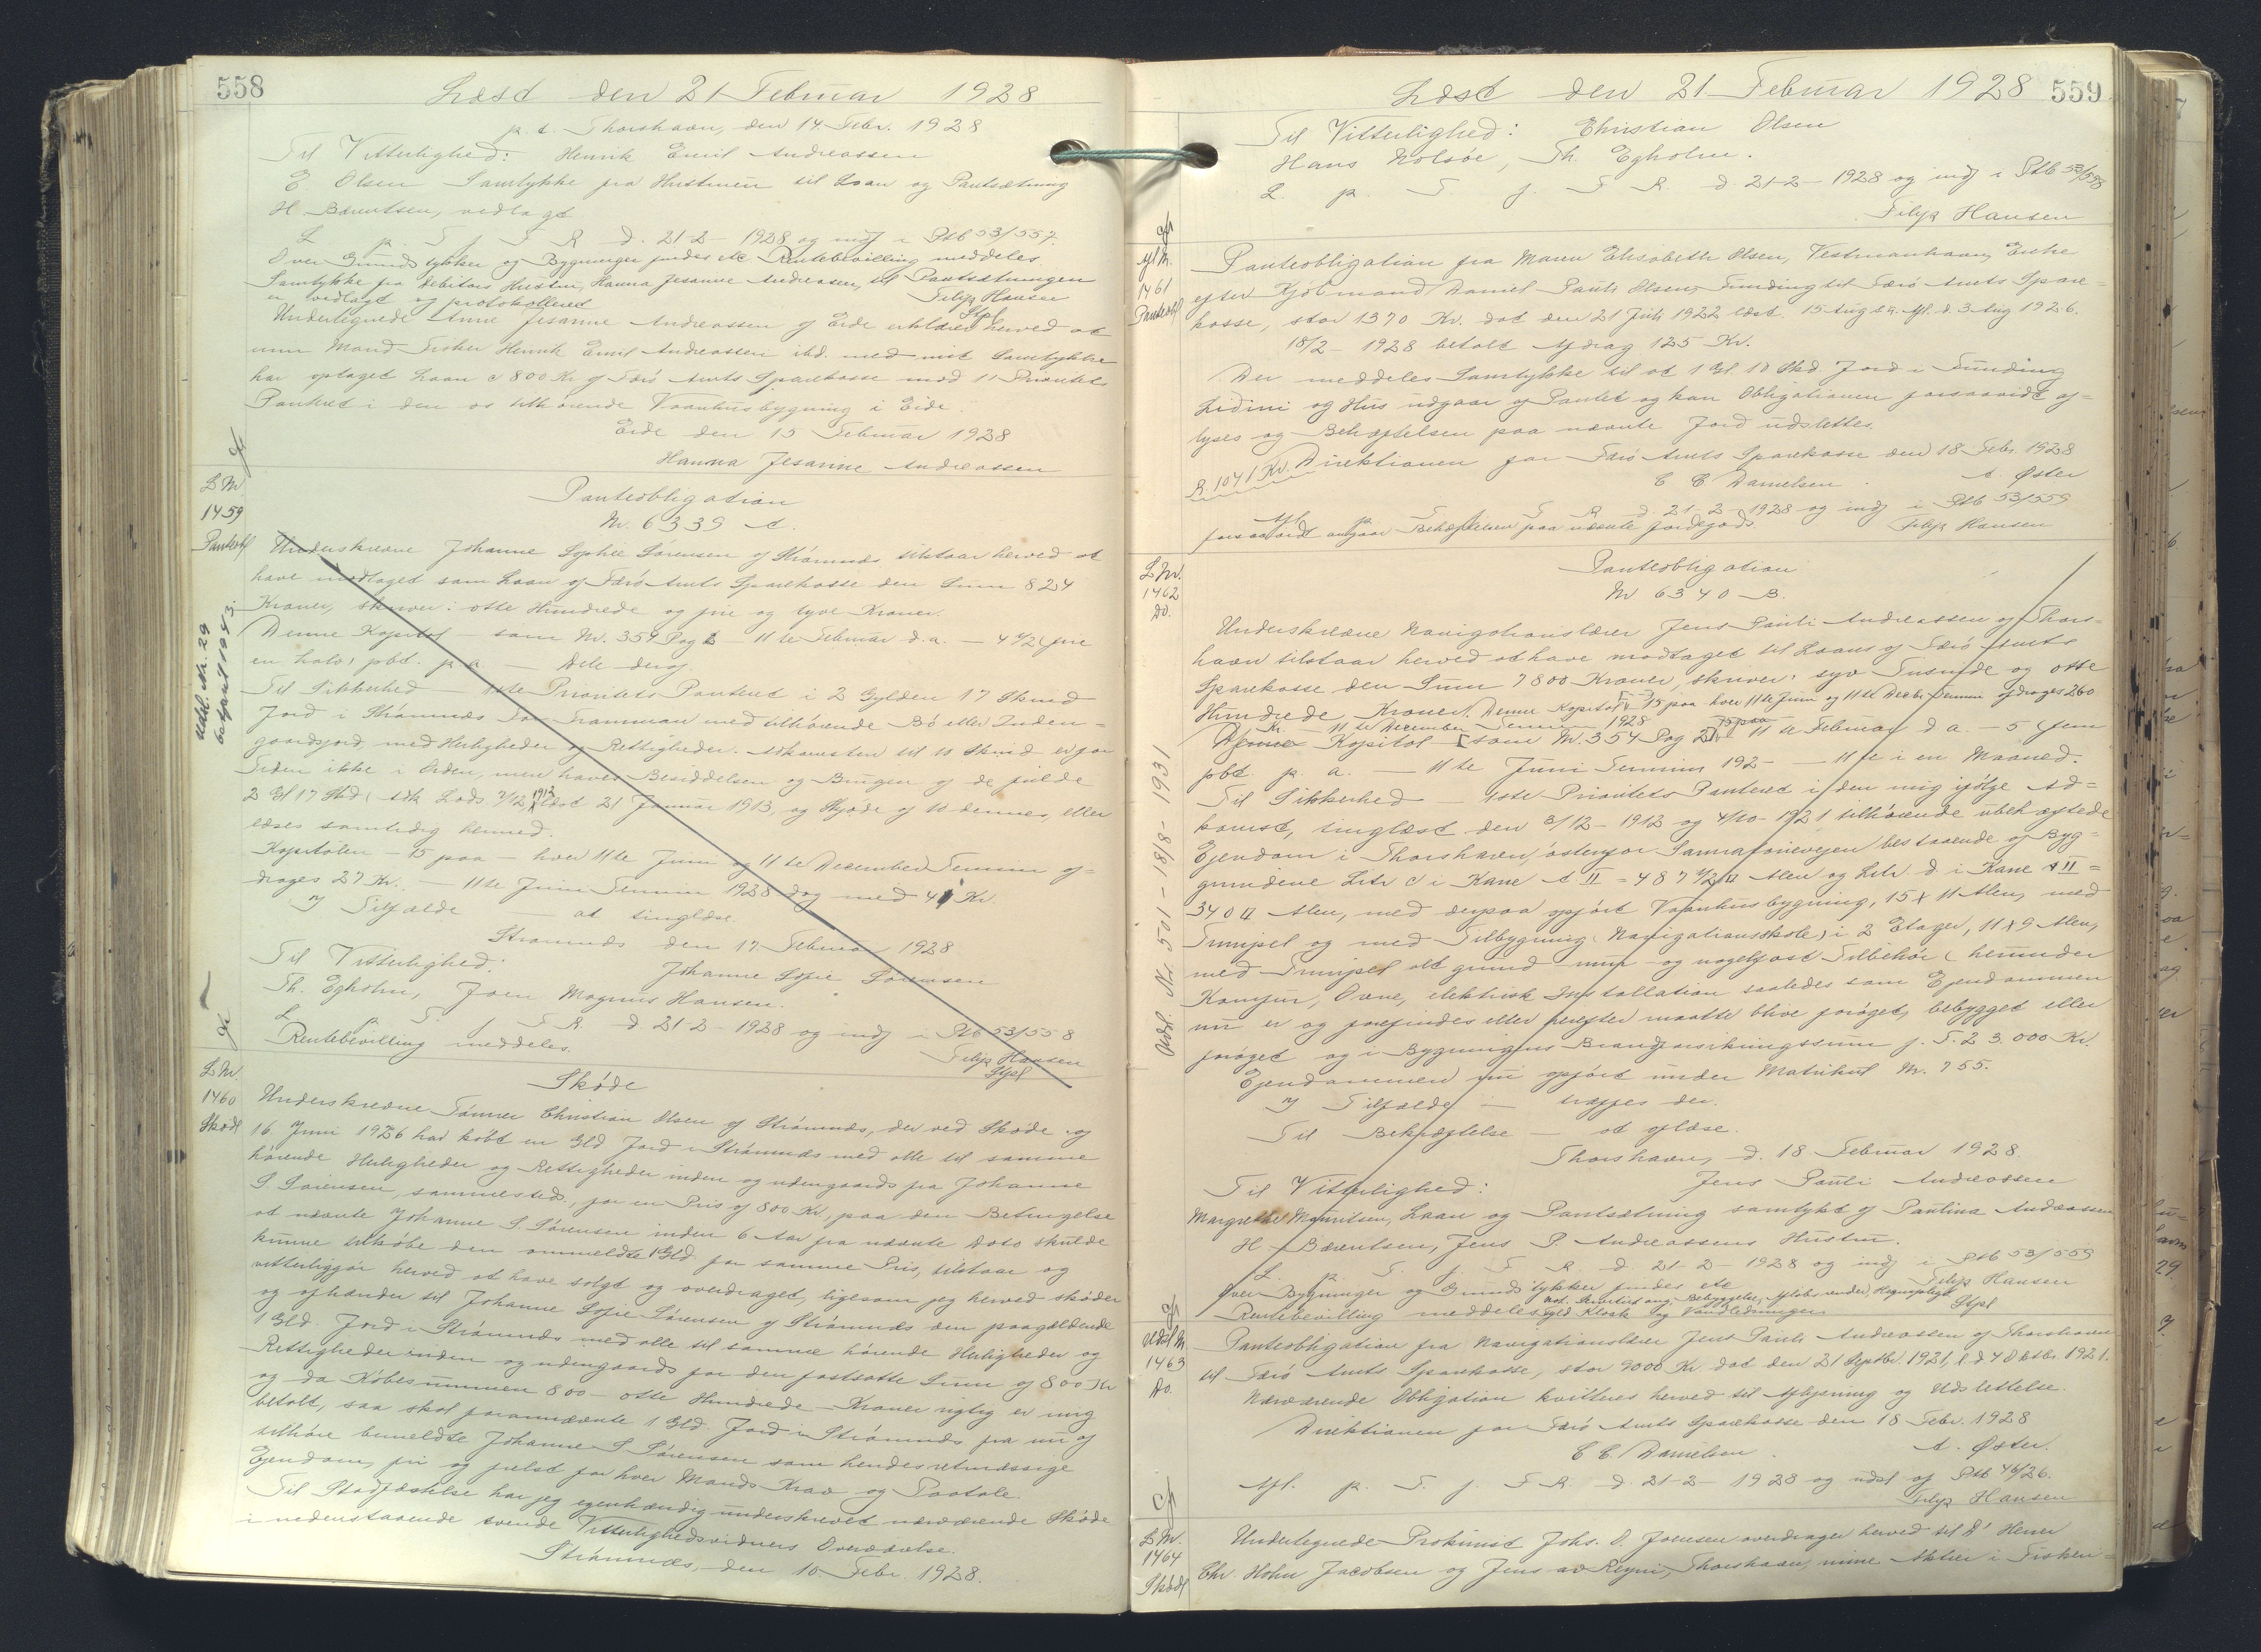 558
Læst den 21 Februar 1928
p. t. Thorshavn, den 14. Febr. 1928
Til Vitterlighed: Henrik Emil Andreassen
E. Olsen Samtykke fra Hustruen til Laan og Pantsætning
H. Bærentsen, vedlagt
L p. T f. F R d. 21-2-1928 og indf i Ptb 53/557.
Over Grundstykker og Bygninger findes etc Rentebevilling meddeles
Samtykke fra Debitors Hustru, Hanna Jesanne Andreassen, til Pantsætningen
er vedlagt og protokolleret Filip Hansen
Stpl
Undertegnede Anne Jesanne Andreassen af Eide erklærer herved at
min Mand Fisker Henrik Emil Andreassen ibd. med mit Samtykke
har optaget Laan a 800 Kr af Færø Amts Sparekasse mod 1' Prioritets
Panteret i den os tilhørende Vaanhusbygning i Eide.
Eide den 15 Februar 1928
Hanna Jesanne Andreassen
L Nr
1459
Panteobl
Panteobligation
Nr. 6339 A.
Underskrevne Johanne Sophie Sørensen af Strømnæs tilstaar herved at
have modtaget som Laan af Færø Amts Sparekasse den Sum 824
Kroner, skriver: otte Hundrede og fire og tyve Kroner.
Denne Kapital — som Nr. 359 Pag 2 — 11te Februar d. a. — 4 1/2 (fire
en halv) pct. p. a — Dele deraf.
Til Sikkerhed — 1ste Prioritets Panteret i 2 Gylden 17 Skind
Jord i Strømnæs med tilhørende Bø eller Inden-
gaardsjord, med Herligheder og Rettigheder. Adkomsten til 10 Skind er for
Tiden ikke i Orden, men haves Besiddelsen og Brugen af de fulde
2 Gl 17 Skd ( Adk Lods 7/12 1912 læst 21 Januar 1913, og Skjøde af 10 dennes, eller
læses samtidig hermed.
Kapitalen — 15 paa — hver 11te Juni og 11te December Termin af-
drages 27 Kr. — 11te Juni Termin 1928 dog med 41 Kr.
I Tilfælde — at tinglæse.
Strømnæs den 17 Februar 1928
Til Vitterlighed: Johanne Sofie Sørensen
Th. Egholm, Joen Magnus Hansen.
L p. T. f. F R. d. 21-2-1928 og indf i Ptb 53/558
Rentebevilling meddeles. Filip Hansen
Stpl
Udsl. Nr. 29
L Nr.
1460
Skødl
Skøde
Underskrevne Tømrer Christian Olsen af Strømnæs, der ved Skøde af
16 Juni 1926 har købt en Gld Jord i Strømnæs med alle til samme
hørende Herligheder og Rettigheder inden og udengaards fra Johanne
S. Sørensen, sammesteds, for en Pris af 800 Kr., paa den Betingelse
at nævnte Johanne S. Sørensen inden 6 Aar fra nævnte Dato skulde
kunne tilkøbe den ommeldte 1 Gld for samme Pris, tilstaar og
vitterliggør herved at have solgt og overdraget, ligesom jeg herved skøder
og afhænder til Johanne Sofie Sørensen af Strømnæs den paagældende
1 Gld. Jord i Strømnæs med alle til samme hørende Herligheder og
Rettigheder inden og udengaards for den fastsatte Sum af 800 Kr
og da Købesummen 800 — otte Hundrede — Kroner rigtig er mig
betalt, saa skal forannævnte 1 Gld. Jord i Strømnæs fra nu af
tilhøre bemeldte Johanne S Sørensen som hendes retmæssige
Ejendom, fri og frelst for hver Mands Krav og Paatale.
Til Stadfæstelse har jeg egenhændig underskrevet nærværende Skøde
i nedenstaaende tvende Vitterlighedsvidners Overværelse.
Strømnæs, den 10 Febr. 1928.
559
Læst den 21 Februar 1928
Til Vitterlighed: Christian Olsen
Hans Nolsøe, Th. Egholm.
L. p. T. f. F R. d. 21-2-1928 og indf i Ptb 53/558
Filip Hansen
Afl Nr.
1461
Panteobl
Panteobligation fra Maren Elisabeth Olsen, Vestmanhavn, Enke
efter Kjøbmand Daniel Pauli Olsen, Funding til Færø Amts Spare-
kasse, stor 1370 Kr. dat den 21 Juli 1922 læst 15 Aug s.A. Afl. d. 3 Aug 1926.
18/2-1928 betalt Afdrag 125 Kr.
Der meddeles Samtykke til at 1 Gl. 10 Skd. Jord i Funding
Lidini og Hus udgaar af Pantet og kan Obligationen forsaavidt af-
lyses og Behæftelsen paa nævnte Jord udslettes.
R. 1041 Kr. Direktionen for Færø Amts Sparekasse den 18 Febr. 1928
C C Danielsen. A. Øster
Afl. p. T. f. F R d. 21-2-1928 og indf i Ptb 53/559
forsaavidt angaar Behæftelsen paa nævnte Jordegods. Filip Hansen
L Nr.
1462
Do.
Panteobligation
Nr 6340 B.
Underskrevne Navigationslærer Jens Pauli Andreassen af Thors-
havn tilstaar herved at have modtaget til Laans af Færø Amts
Sparekasse den Sum 7800 Kroner, skriver: syv Tusinde og otte
Hundrede Kroner. Denne Kapital 15 paa hver 11te Juni og 11te Decbr. Termin afdrages 260
Kr. — 11te December Termin 1928 15 paa
Denne Kapital som Nr. 354 Pag 2 11te Februar d a. — 5 (fem
pct. p. a. — 11te Juni Termin 192- — 11te i en Maaned.
Til Sikkerhed — 1ste Prioritets Panteret i den mig ifølge Ad-
komst, tinglæst den 3/12-1912 og 4/10-1921 tilhørende ubehæftede
Ejendom i Thorshavn, østenfor bestaaende af Byg-
grundene Litr c i Kane A II = 487 1/2 □ Alen og Litr. d i Kane A II =
340 □ Alen, med derpaa opført Vaanhusbygning, 15 x 11 Alen, med
Trempel og med Tilbygning (Navigationsskole) i 2 Etager, 11 x 9 Alen,
med Trempel alt grund- mur- og nagelfast Tilbehør (herunder
Komfur, Ovne, elektrisk Installation saaledes som Ejendommen
nu er og forefindes eller herefter maatte blive forøget, bebygget eller
forøget og i Bygningens Brandforsikringssum f. T. 23.000 Kr.
Ejendommen nu opført under Matrikul Nr. 755.
I Tilfælde — træffes der.
Til Bekræftelse — at aflæse.
Thorshavn, d. 18 Februar 1928.
Til Vitterlighed: Jens Pauli Andreassen
Margrethe Mouritsen, Laan og Pantsætning samtykt af Paulina Andreassen
H. Bærentsen, Jens P. Andreassens Hustru.
L. p. T. f. F R. d. 21-2-1928 og indf i Ptb 53/559
Over Bygninger og Grundstykker findes etc Filip Hansen
Rentebevilling meddeles Kloak og Vandledninger Stpl
Udsl. Nr. 501 - 18/8-1931
Udsl Nr
1463
Do.
Panteobligation fra Navigationslærer Jens Pauli Andreassen af Thorshavn
til Færø Amts Sparekasse, stor 9000 Kr. dat den 21 Septbr. 1921, l. d 4 Oktbr. 1921.
Nærværende Obligation kvitteres herved til Aflysning og Udslettelse.
Direktionen for Færø Amts Sparekasse den 18 Febr. 1928
C C. Danielsen. A. Øster.
Afl. p. T. f. F R. d. 21-2-1928 og udsl af Ptb 46/26.
Filip Hansen
L Nr.
1464
Skødl
Undertegnede Prokurist Johs. D. Joensen overdrager herved til D' Herrer
Chr. Holm Jacobsen og Jens av Reyni, Thorshavn, mine Aktier i Fisken-